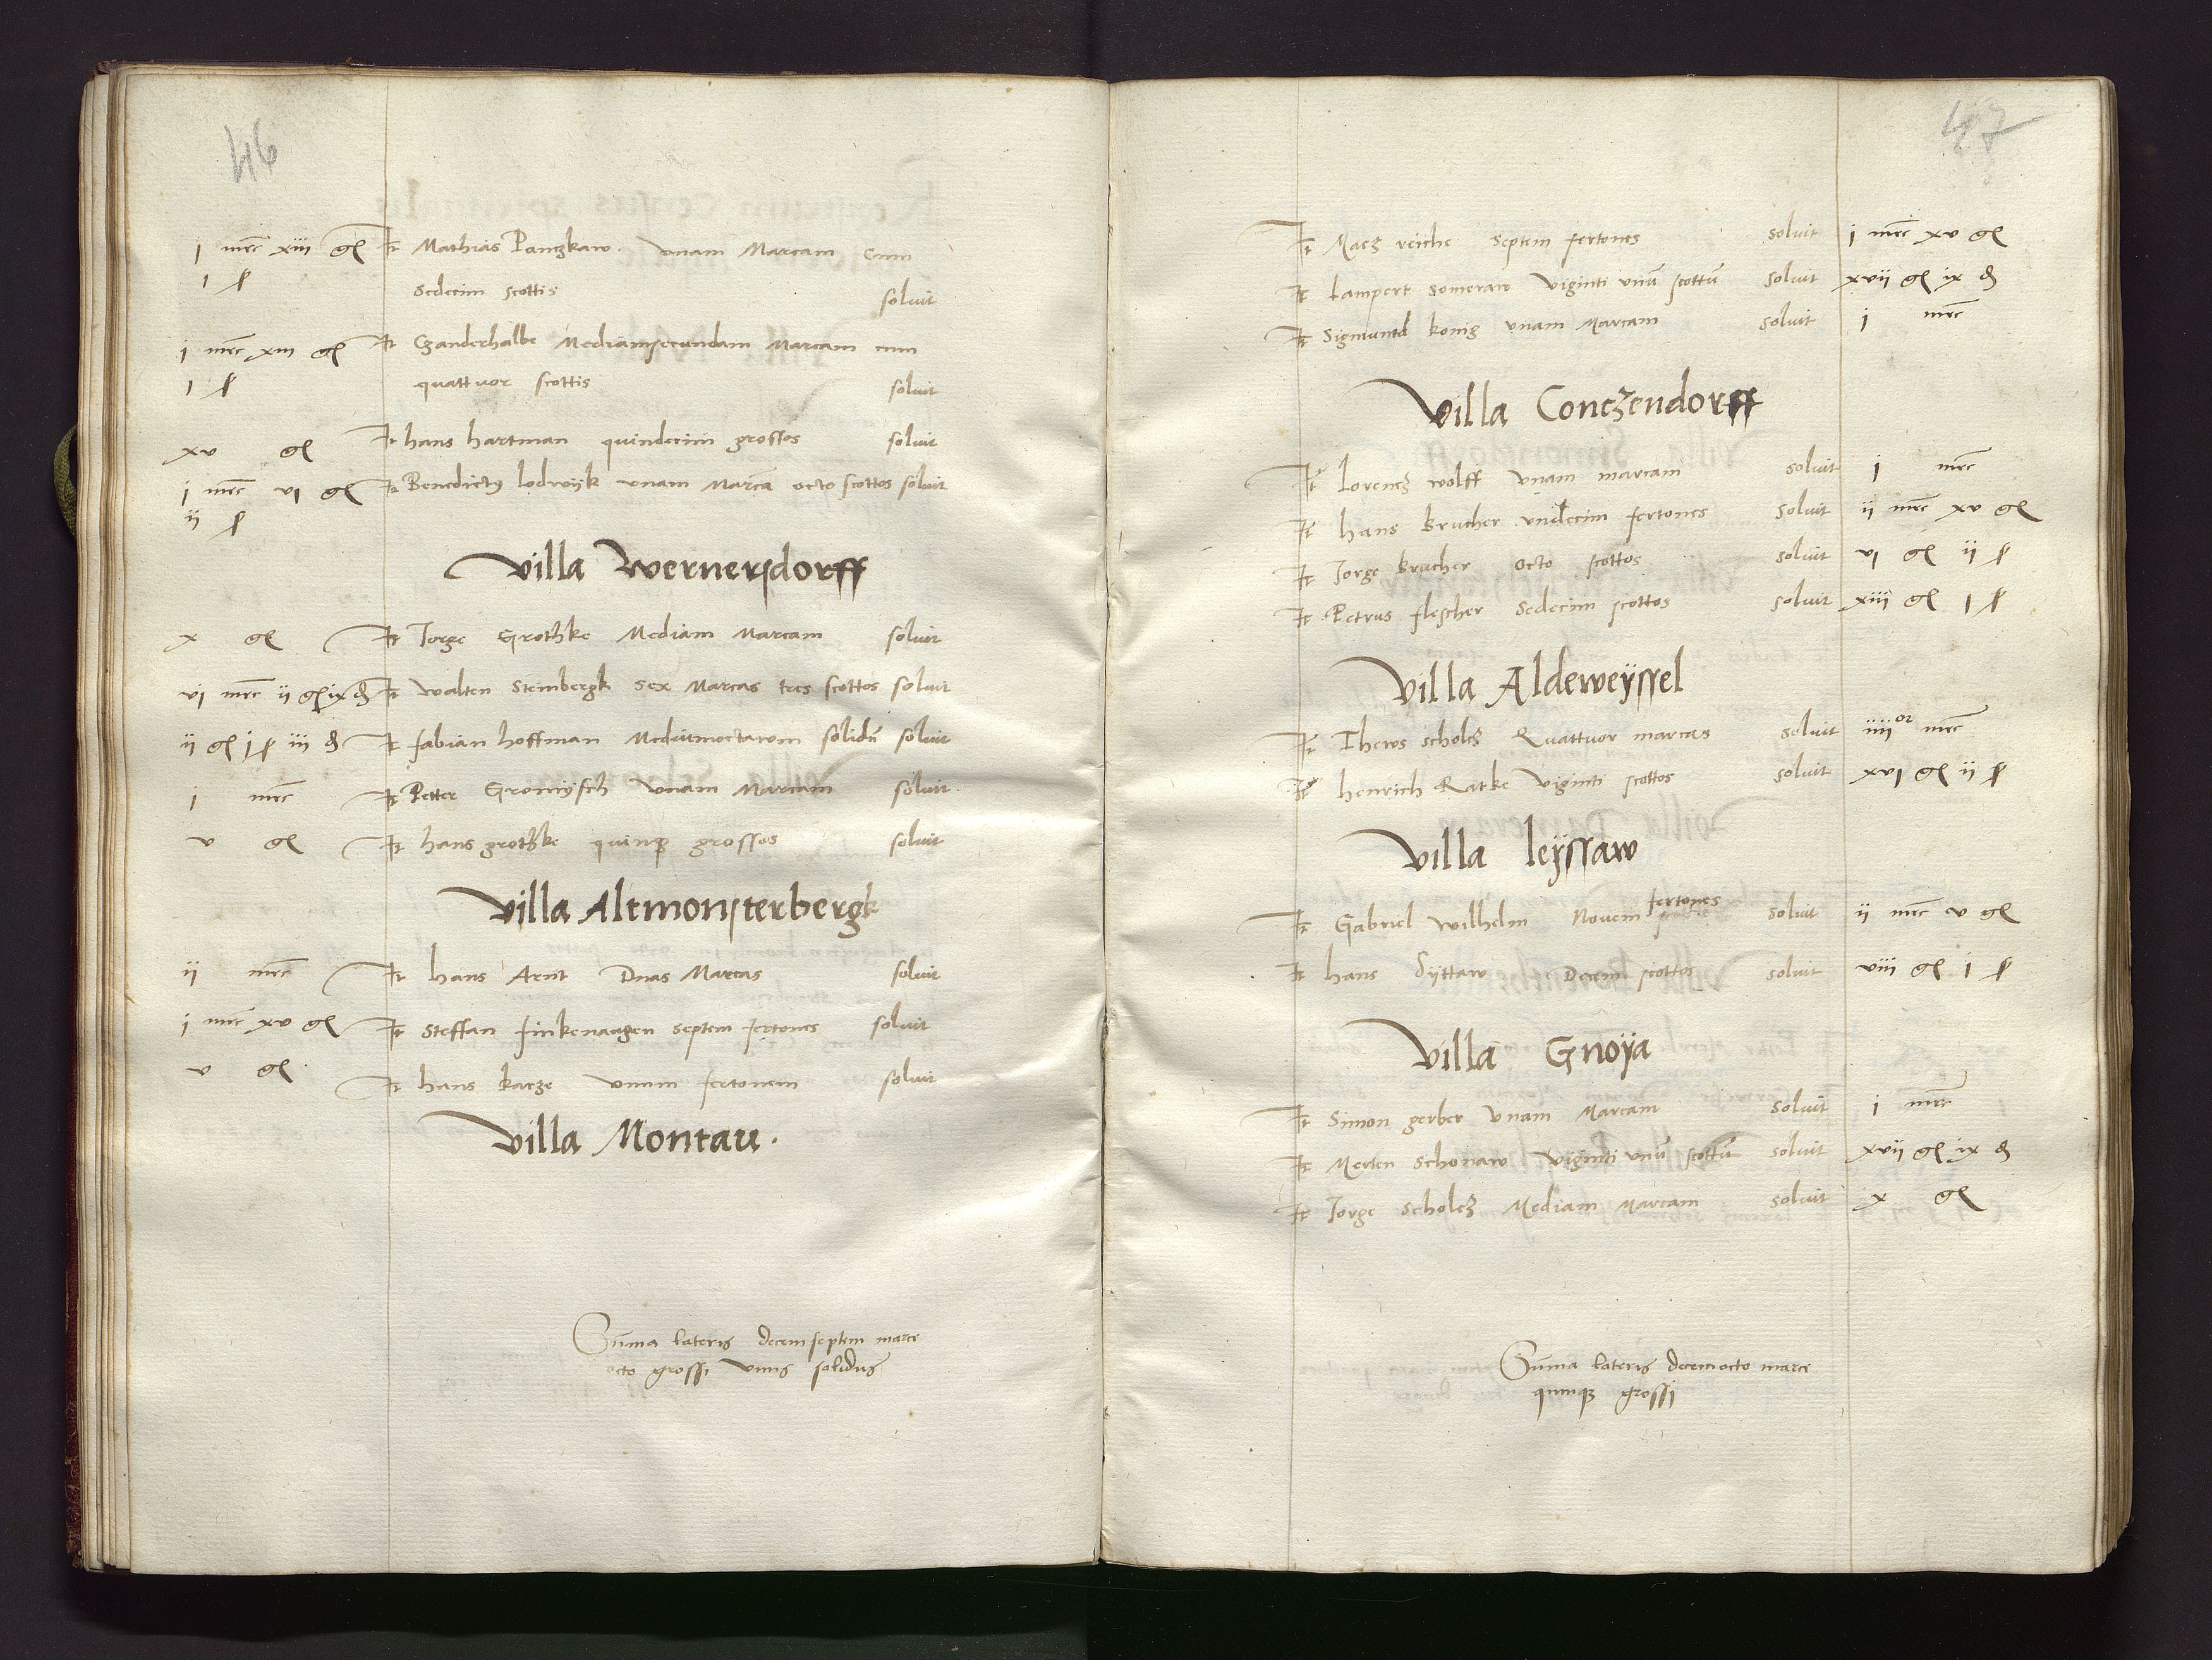 46
j mrc xiii gl Jt Mathias Panczkaw. vnam Marcam cum
j ß sedecim scottis soluit
j mrc xiii gl Jt Czanderhalbe Mediamsecundam Marcam cum
j ß quattuor scottis soluit
xv gl Jt hans hartman quindecim grossos soluit
j mrc vj gl Jt Benedictus lodwijk vnam Marcā octo scottos soluit
ij ß
Villa Wernersdorff
x gl Jt Jorge Grothke Mediam Marcam soluit
vj mrc ij gl ix d Jt walten steinbergk sex Marcas tres scottos soluit
ij gl j ß iij d Jt fabian hoffman solidū soluit
j mrc Jt Petter vnam Marcam soluit
v gl Jt hans grothke quinq grossos soluit
Villa Altmonsterbergk
ij mrc Jt hans Arnt Duas Marcas soluit
j mrc xv gl Jt Steffan finkenaugen septem fertones soluit
v gl Jt hans kacze vnum fertonem soluit
Villa Montau.
Sūma lateris decemseptem marce
octo grossi vnus solidus
47
Jt Macz reiche septem fertones soluit j mrc xv gl
Jt Lampert someraw viginti vnū scottū soluit xvii gl ix d
Jt Sigmuntd konig vnam Marcam soluit j mrc
Villa Conczendorff
Jt Lorencz wolff vnam marcam soluit j mrc
Jt hans krucher vndecim fertones soluit ij mrc xv gl
Jt Jorge krucher octo scottos soluit vj gl ij ß
Jt Petrus flescher sedecim scottos soluit xiii gl j ß
Villa Aldeweÿssel
Jt Thews scholcz Quattuor marcas soluit iiii or mrc
Jt henrich Ratke viginti scottos soluit xvj gl ij ß
Villa leÿssaw
Jt Gabriel wilhelm Nouem fertones soluit ij mrc v gl
Jt hans Dÿttaw Decem scottos soluit viii gl j ß
Villa Gnoÿa
Jt Simon gerber vnam Marcam soluit j mrc
Jt Merten Schonaw viginti vnū scottū soluit xvii gl ix d
Jt Jorge Scholcz Mediam Marcam soluit x gl
Sūma lateris decemocto marce
quinqz grossi